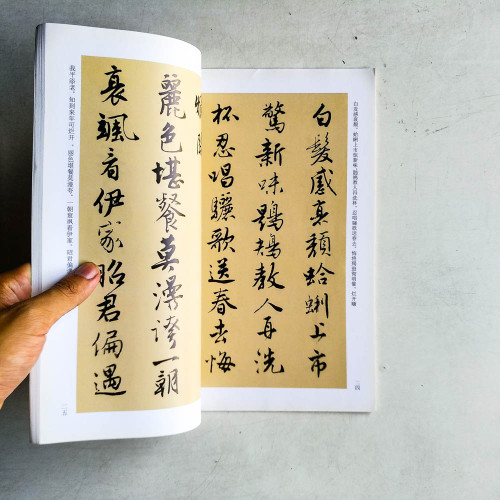 白发感衰颓，蛤蜊上市惊新味，鹧鸪教人再洗杯。忍唱骊歌送春去，悔
白髮感衰頹蛤蜊上市
驚新味鷓鴣教人再洗
杯忍唱驪歌送春去悔
二四
麗色堪餐莫漫誇一朝
衰颯看伊家昭君偏遇
老。如到来年可烂开。丽色堪餐莫漫夸，一朝衰飒看伊家。昭君偏
二五